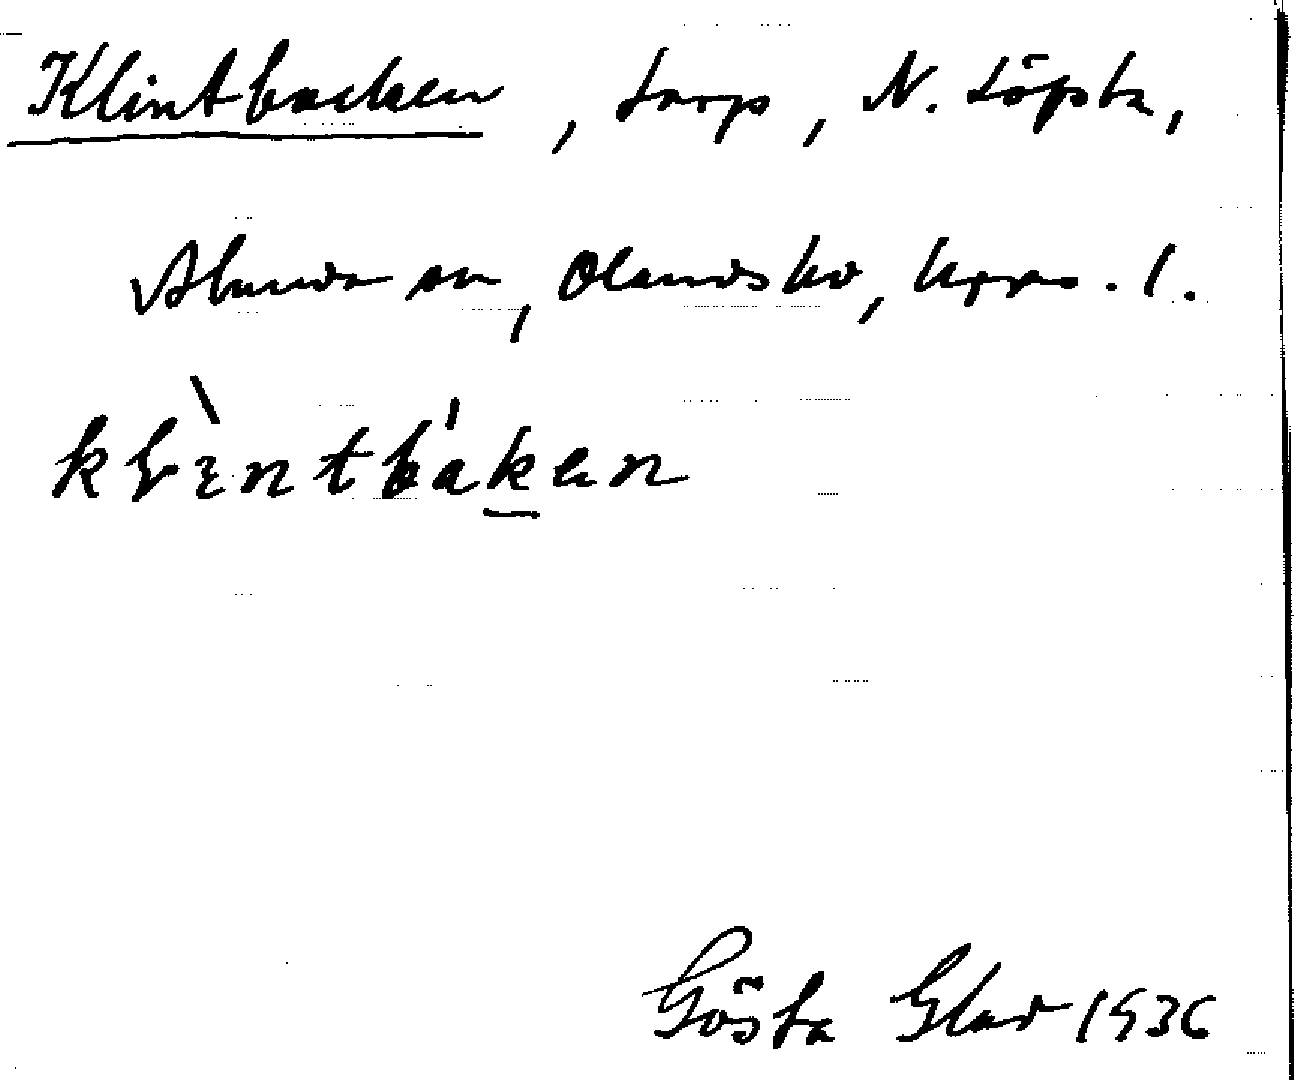 Klintbacken, torp, N. Löpsta,
Alunda sn, Olands hd, Upps. l.
klìntbáken
Gösta Glad 1936